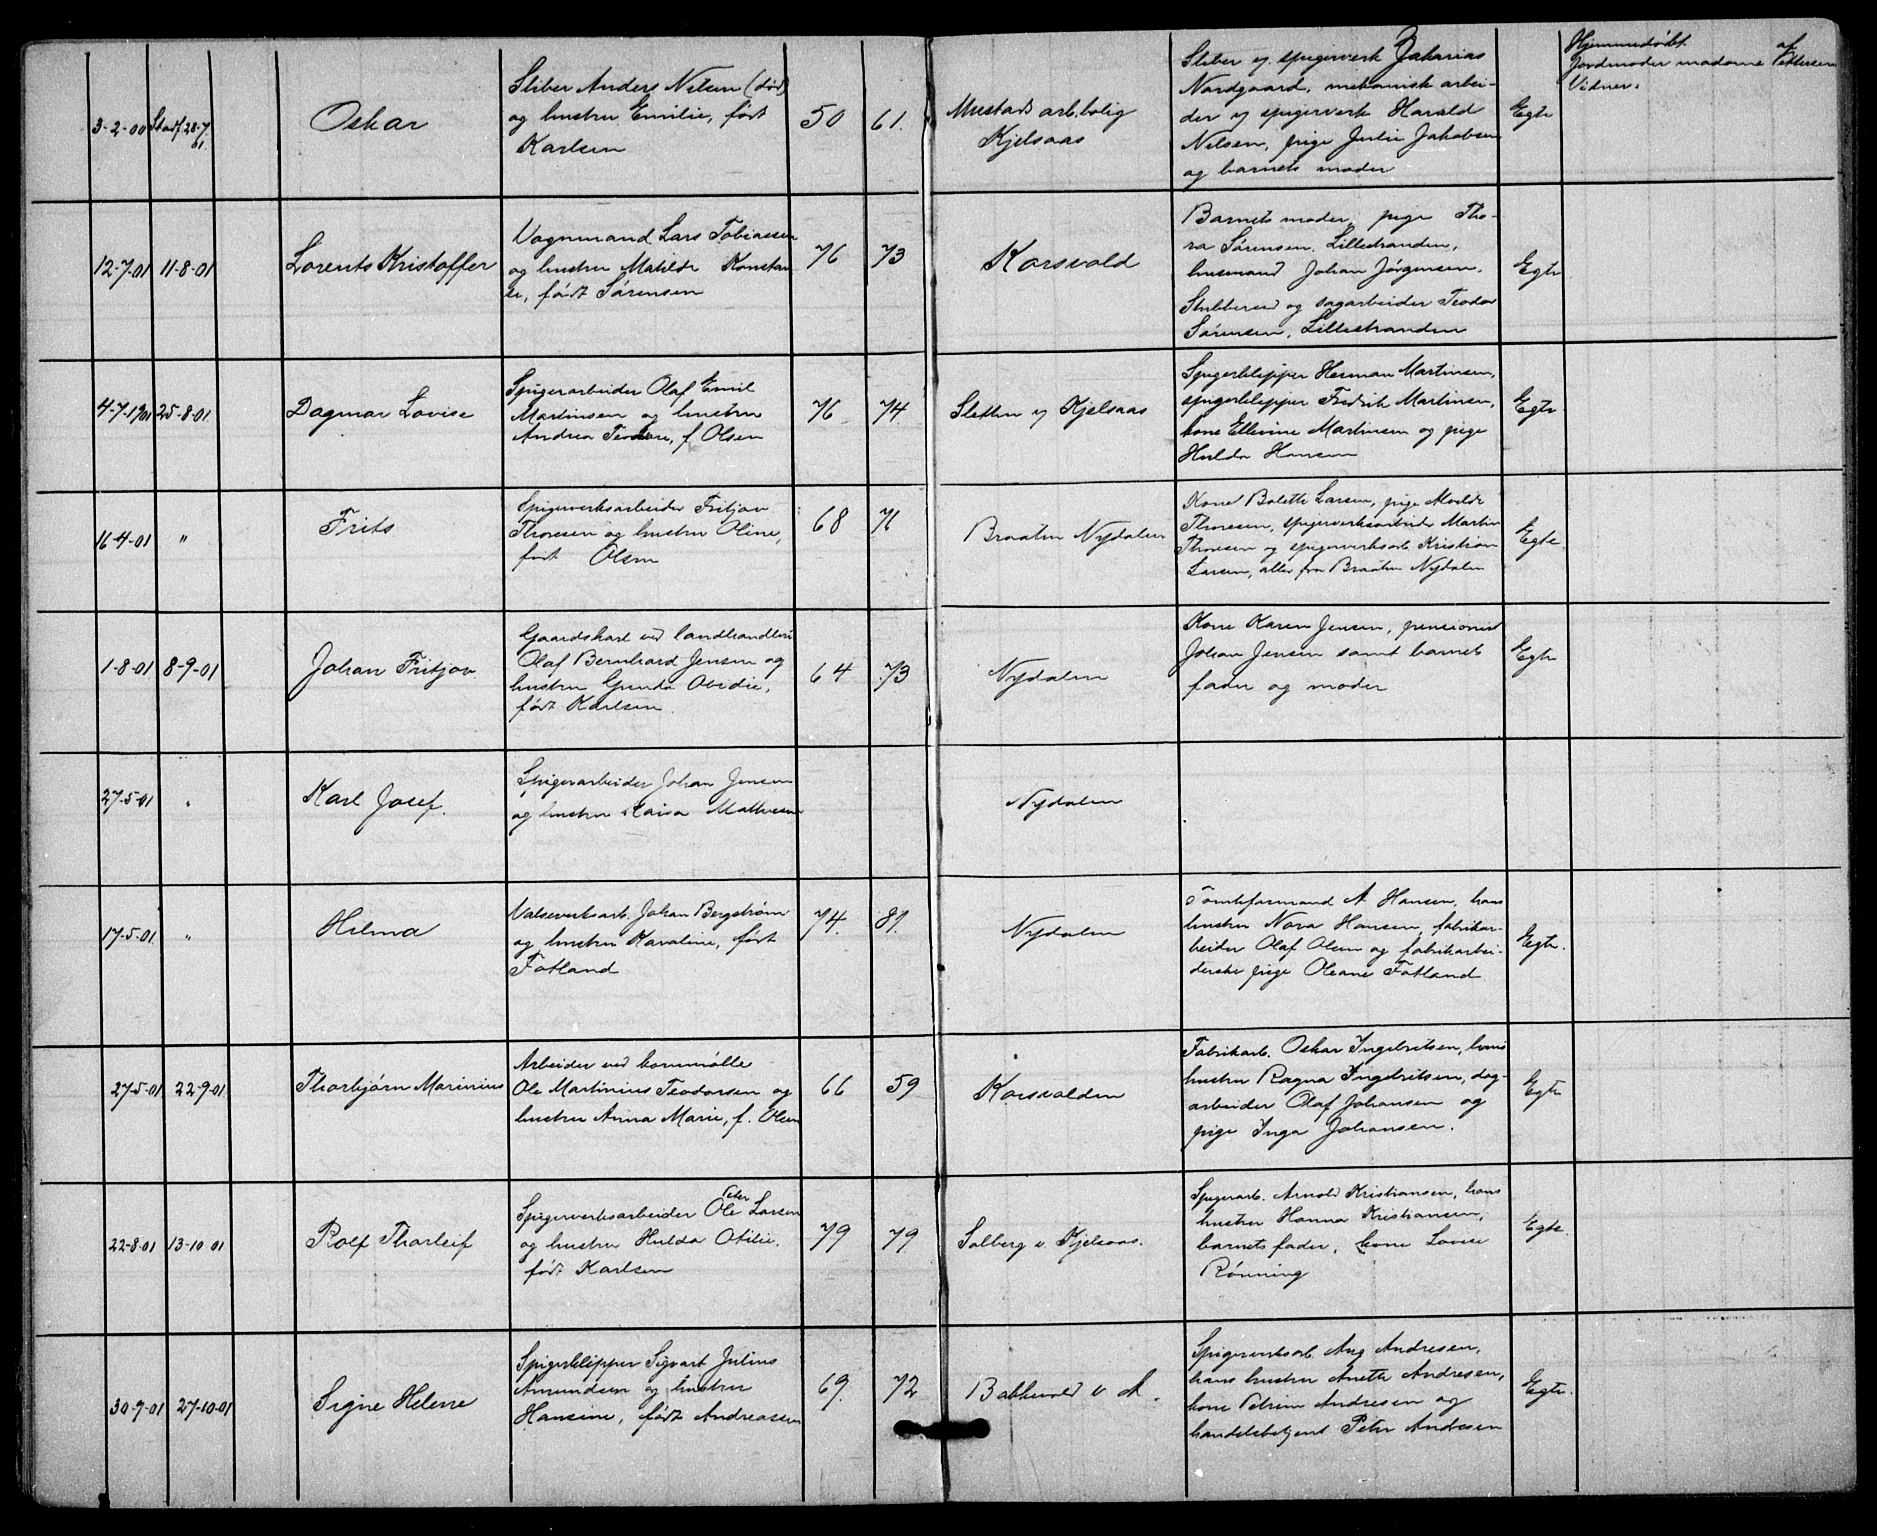 3-2-00
Stadf. 28-7
01.
Oskar
Sliber Anders Nilsen (død)
og hustru Emilie, født
Karlsen
50
61.
Mustads arb.bolig
Kjelsaas
Sliber v. spigerverk Zakarias
Nordgaard, mekanisk arbei-
der v. spigerverk Harald
Nilsen, pige Julie Jakobsen
og barnets moder
Egte
Hjemmedøbt af
Jordmoder madame Pettersen
Vidner.
12-7-01
11-8-01
Lorents Kristoffer
Vognmand Lars Tobiassen
og hustru Matilde Konstan
se, født Sørensen
76
73
Korsvold
Barnets moder, pige Tho-
ra Sørensen, Lillestranden,
husmand Johan Jørgensen,
Stubberud og sagarbeider Teodor
Sørensen, Lillestranden
Egte
4-7-1901
25-8-01
Dagmar Lovise
Spigerarbeider Olaf Emil
Martinsen og hustru
Andrea Teodore, f. Olsen
76
74.
Sletten v. Kjelsaas
Spigerklipper Herman Martinsen,
spigerklipper Fredrik Martinsen,
kone Ellevine Martinsen og pige
Hulda Hansen
Egte
16-4-01
"
Frits
Spigerverksarbeider Fritjov
Thoresen og hustru Oline,
født Olsen
68
71
Braaten Nydalen
Kone Bolette Larsen, pige
Thoresen, spigerverksarbeider Martin
Thoresen og spigerverksarb. Kristian
Larsen, alle fra Braaten Nydalen
Egte
1-8-01
8-9-01
Johan Fritjov
Gaardskarl ved landhandleri
Olaf Bernhard Jensen og
hustru Gunda Ovidie,
født Karlsen.
64
73
Nydalen
Kone Karen Jensen, pensionist
Johan Jensen samt barnets
fader og moder
Egte
27-5-01
"
Karl Josef.
Spigerarbeider Johan Jensen
og hustru Kaisa Mathisen
Nydalen
17-5-01
"
Hilma
Valseverksarb. Johan Bergstrøm
og hustru Karoline, født
Fotland
74.
81.
Nydalen
Tomteformand A Hansen, hans
hustru Nora Hansen, fabrikar-
beider Olaf Olsen og fabrikarbei-
derske pige Oleane Fotland
Egte.
27-5-01
22-9-01
Thorbjørn Marinius
Arbeider ved kornmølle
Ole Martinius Teodorsen og
hustru Anna Marie, f. Olsen
66
59
Korsvolden
Fabrikarb. Oskar Ingebritsen, hans
hustru Ragna Ingebritsen, dag-
arbeider Olaf Johansen og
pige Inga Johansen.
Egte
22-8-01
13-10 01
Rolf Thorleif
Peter
Spigerverksarbeider Ole Larsen
og hustru Hulda Otilie,
født Karlsen
79
79
Solberg v. Kjelsaas.
Spigerarb. Arnold Kristiansen, hans
hustru Hanna Kristiansen,
barnets fader, kone Lovise
Rønning
Egte.
30-9-01
27-10-01
Signe Helene
Spigerklipper Sigvart Julius
Amundsen og hustru
Hansine, født Andreassen
69.
72
Bakkevold v. A.
Spigerverksarb. Aug Andresen,
hans hustru Anette Andresen,
kone Petrine Andresen og
handelsbetjent Peter Andresen
Egte.